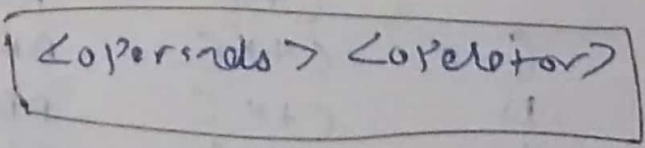 <operands> <operator>